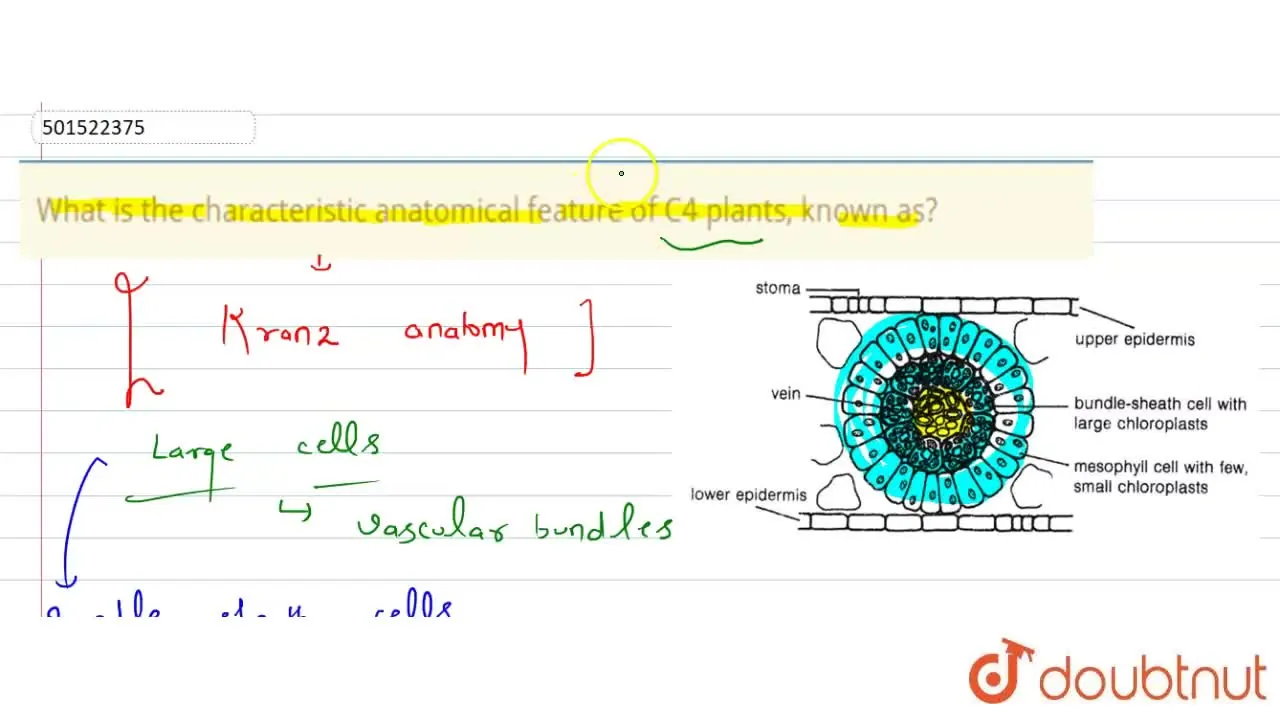 501522375
What is the characteristic anatomical feature of C4 plants, known as?
Kranz anatomy
stoma
upper epidermis
vein
bundle-sheath cell with
large chloroplasts
Large cells
mesophyll cell with few,
small chloroplasts
lower epidermis
vascular bundles
cells
doubtnut